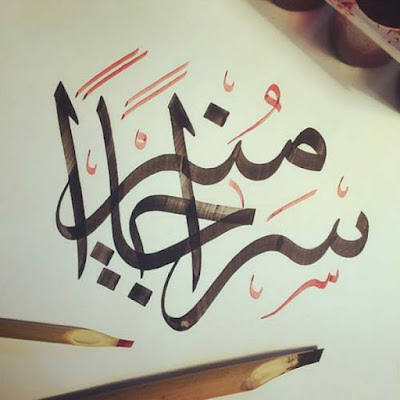 سراجًا مُنيرًا